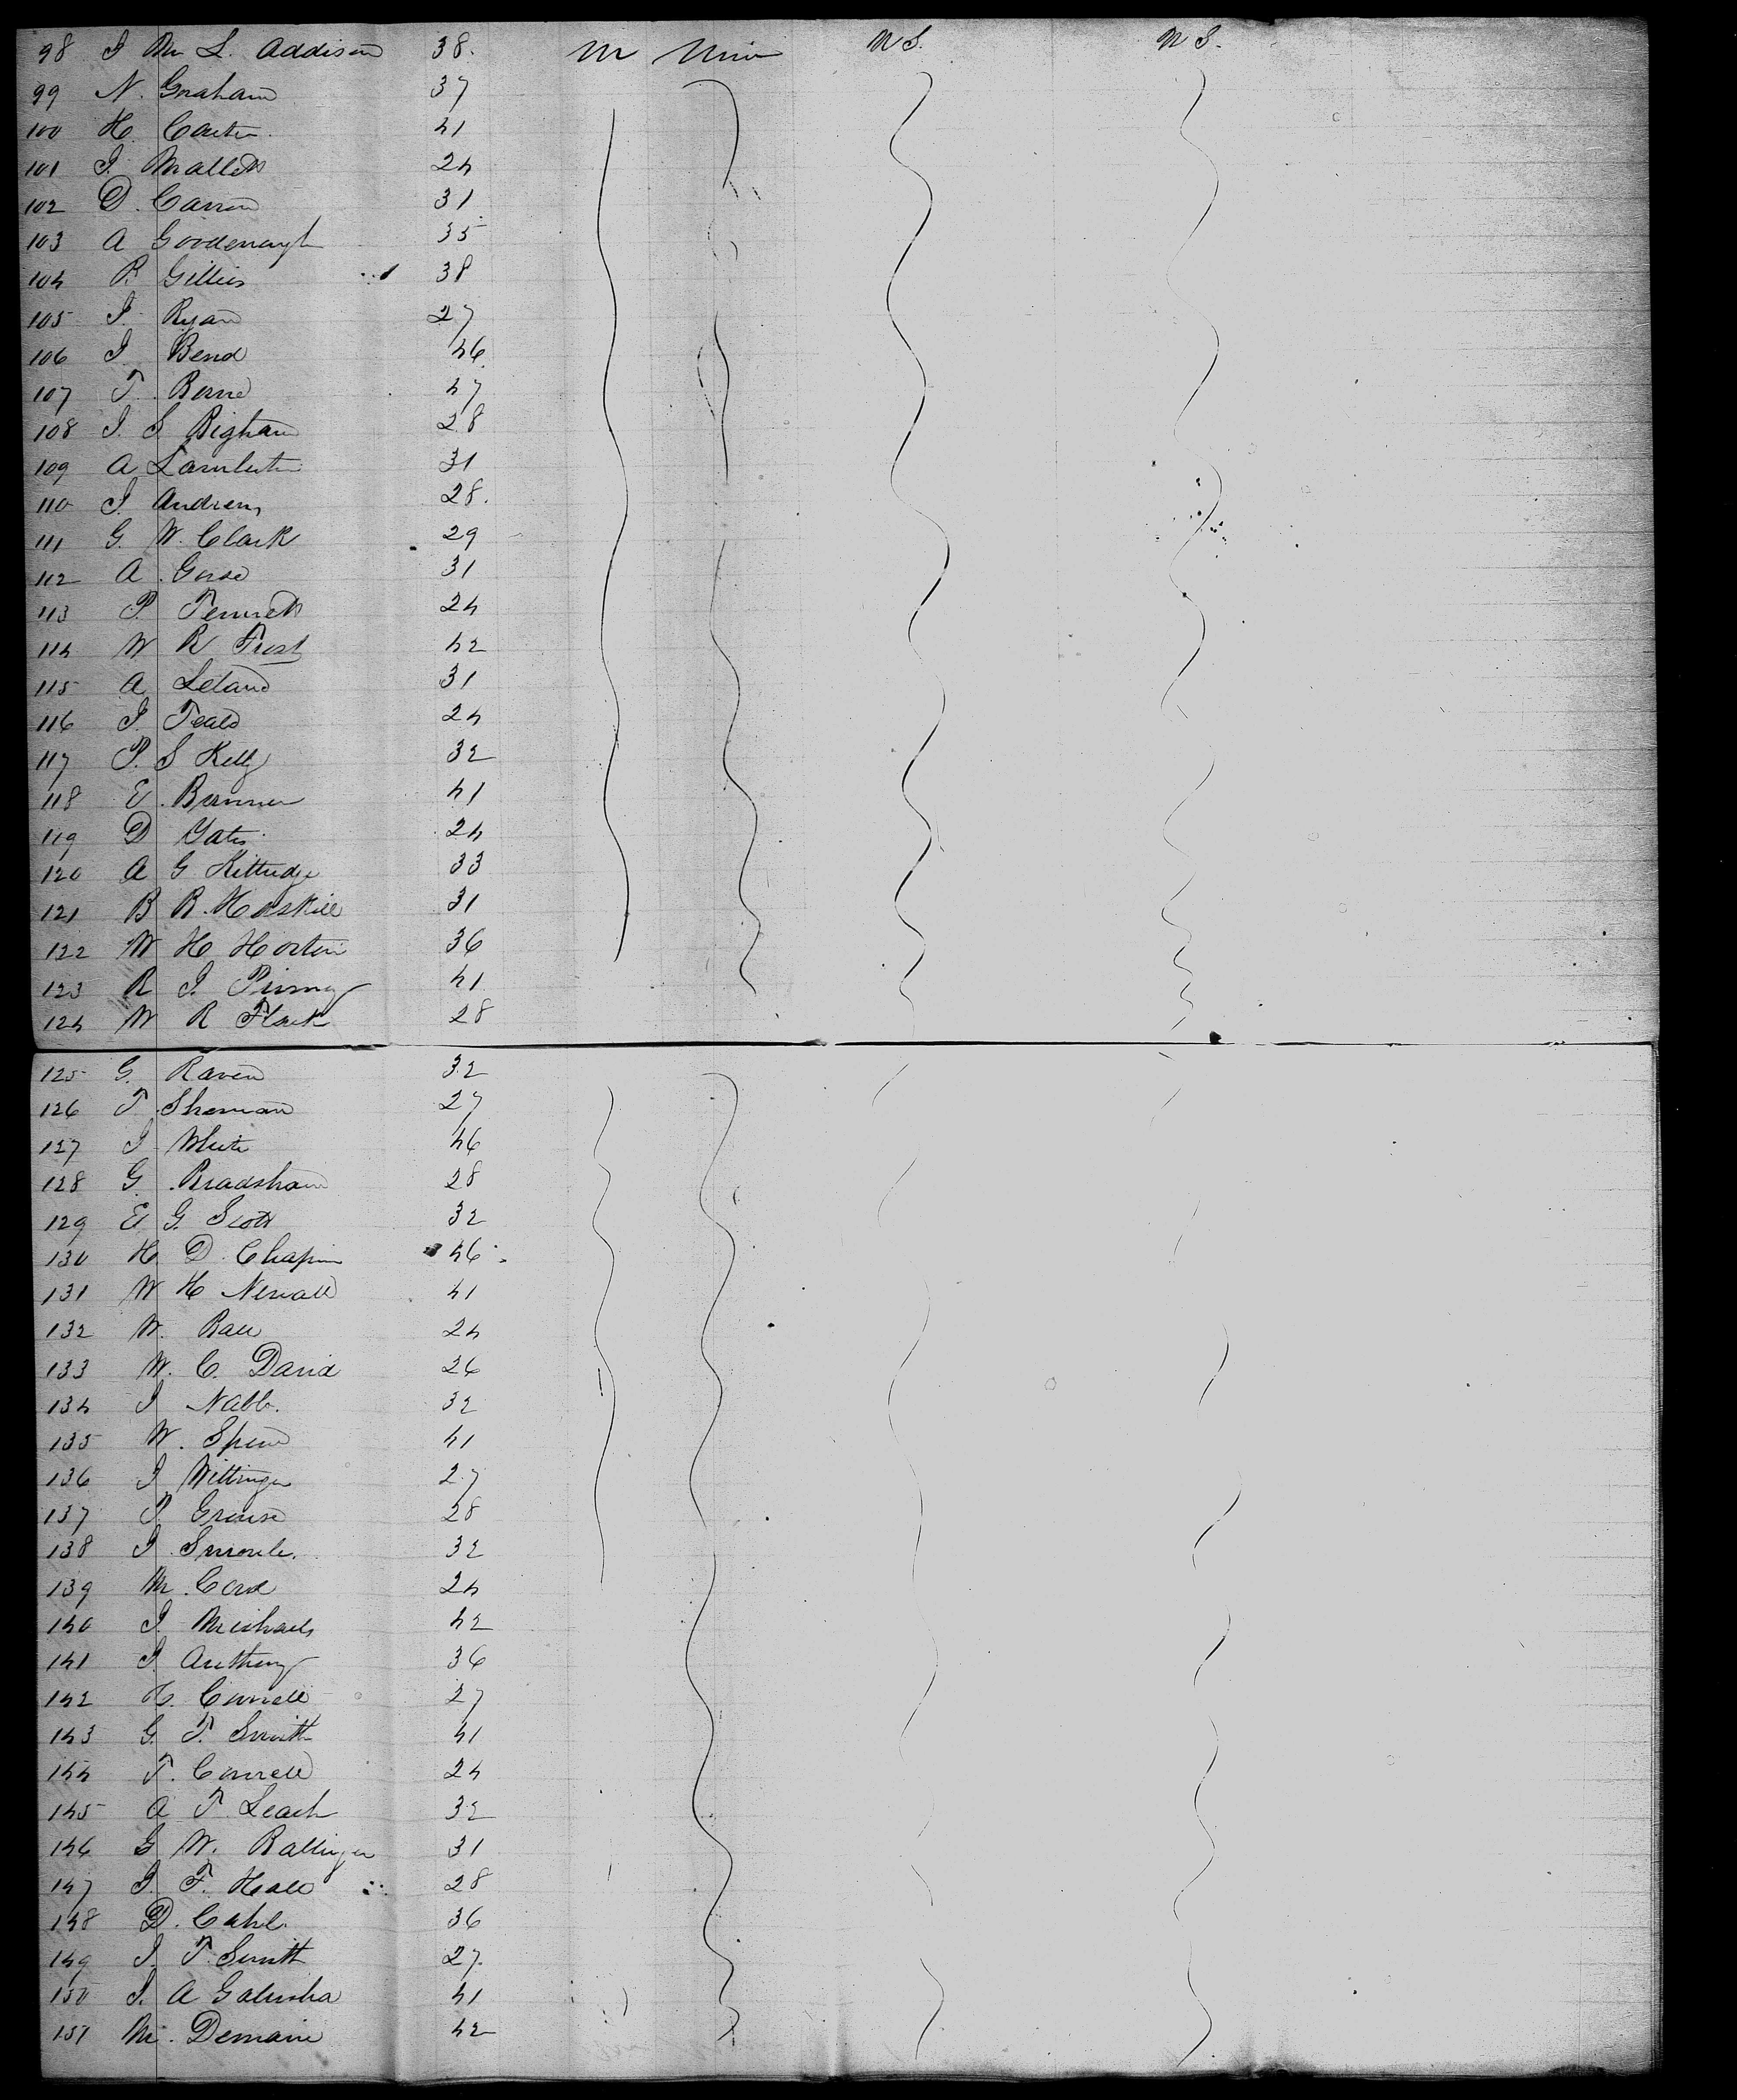 98 J Mc L. Addison 38. M Min U S. U S.
99 N. Graham 37
100 H. Carter 41
101 J. Mallett 24
102 D. Carson 31
103 A Goodenough 35
104 R. Gillies 38
105 J. Ryan 27
106 J Bend 46
107 T. Borne 47
108 J. S Bigham 28
109 A Lambert 31
110 J. Andrews 28.
111 G. W. Clark 29
112 A. Gorse 31
113 P. 24
114 W R Frost 42
115 A Leland 31
116 J. Teals 24
117 P. S Kelly 32
118 E. 41
119 D Yates 24
120 A G Kittredge 33
121 B R. Haskill 31
122 W H Horton 36
123 R J. Pinney 41
124 W R Flack 28
125 G. Raven 32
126 T. Sherman 27
127 J White 46
128 G. Bradshaw 28
129 E G. Scott 32
130 H. D. Chapin 46
131 W H Newall 41
132 W. Ball 24
133 W. C. David 26
134 J Nabb. 32
135 W. 41
136 J Wittinger 27
137 P. Crouse 28
138 J. 32
139 M. Cord 24
140 J. Michaels 42
141 J. Anthony 36
142 H. Connell 27
143 G. T. Smith 41
144 T. Connell 24
145 A T Leach 32
146 G W. Ballinger 31
147 J. F. Hall 28
148 D. Cahil. 36
149 J. T. Smith 27.
150 J. A Galusha 41
151 M. Demain 42